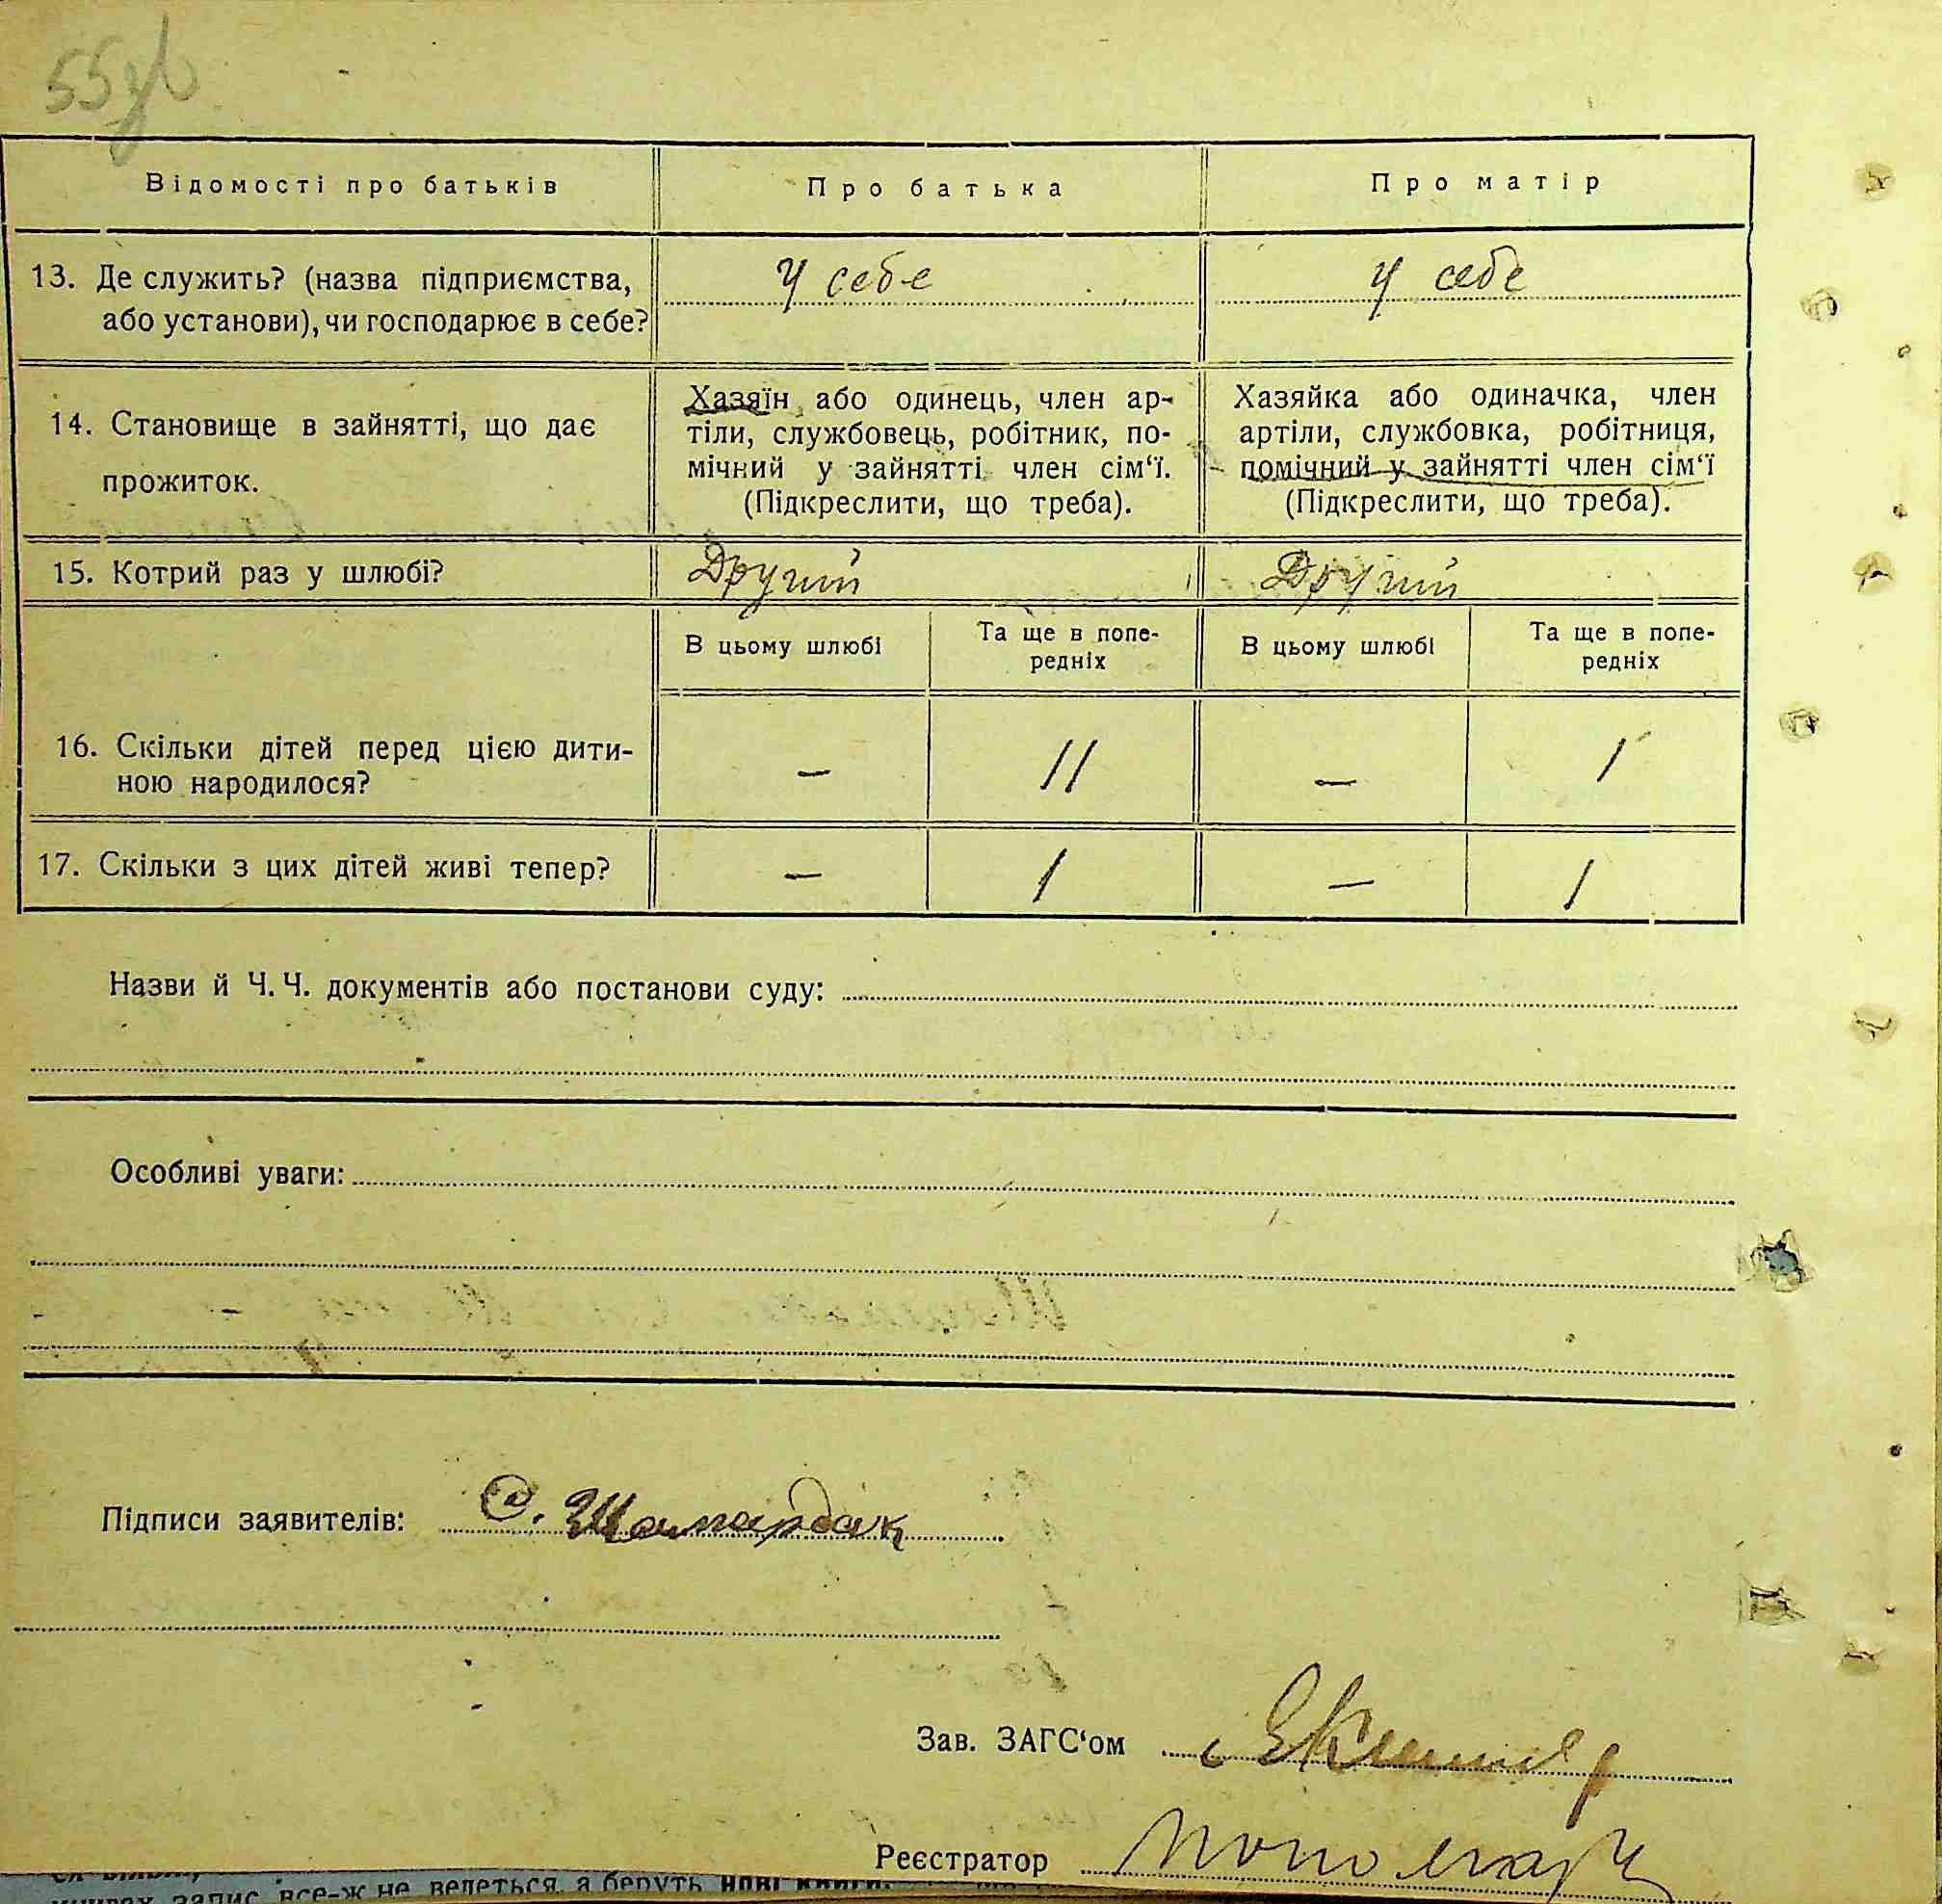 55зв
Відомості про батьків Про батька Про матір
13. Де служить? (назва підприємства, У себе У себе
або установи), чи господарює в себе?
14. Становище в зайнятті, що дає
прожиток.
Хазяїн або одинець, член ар-
тіли, службовець, робітник, по-
мічний у зайнятті член сім‘ї.
(Підкреслити, що треба).
Хазяйка або одиначка, член
артіли, службовка, робітниця,
помічний у зайнятті член сім‘ї
(Підкреслити, що треба).
15. Котрий раз у шлюбі? Другий Другий
В цьому шлюбі Та ще в попе-
редніх
В цьому шлюбі Та ще в попе-
редніх
16. Скільки дітей перед цією дити-
ною народилося?
— 11 — 1
17. Скільки з цих дітей живі тепер? — 1 — 1
Назви й Ч. Ч. документів або постанови суду:
Особливі уваги:
Підписи заявителів: С. Шапардак
Зав. ЗАГС‘ом
Реєстратор
книгах запис все-ж не ведеться, а беруть нові книги.